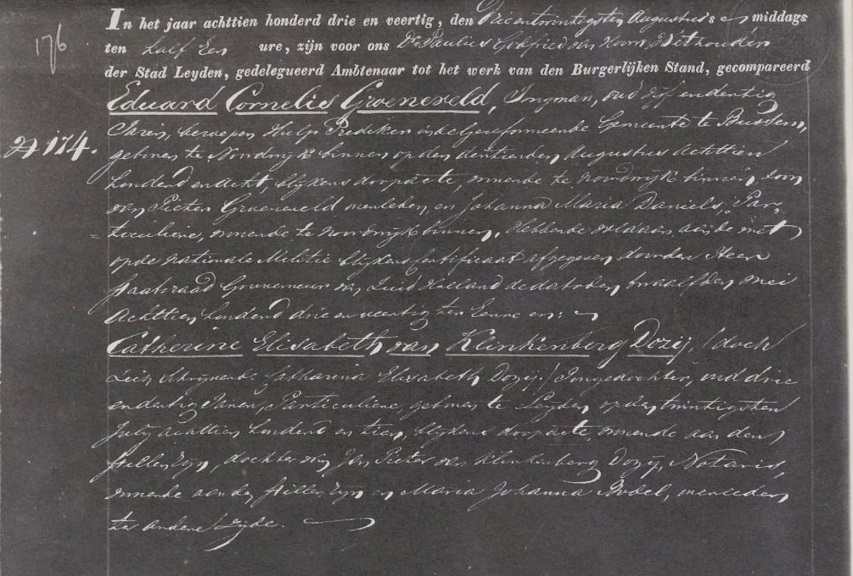 176
In het jaar achttien honderd drie en veertig, den Augustus middags
ten half Een ure, zijn voor ons Dr Paulus Godfried van Hoorn Wethouder
der Stad Leyden, gedelegueerd Ambtenaar tot het werk van den Burgerlijken Stand, gecompareerd
Eduard Cornelis Groeneveld, Jongman, oud vijf en dertig
№ 174.
Jaren, beroep Hulp Prediker in de Gereformeerde Gemeente te Bussem,
geboren te Noordwijk binnen op den dertienden Augustus achttien
honderd en acht, blijkens doopacte, wonende te Noordwijk binnen, zoon
van Pieter Groeneveld overleden, en Johanna Maria Daniels, Par-
ticuliere, wonende te Noordwijk binnen, hebbende voldaan aan de wet
op de nationale Militie blijkens certificaat afgegeven door den Heer
Staatsraad Gouverneur van Zuid Holland de dato den twaalfden mei
Achttien honderd drie en veertig ten Eenre en:
Catherine Elisabeth van Klinkenberg Dozij, (doch
zich schrijvende Catharina Elisabeth Dozij.) Jongedochter, oud drie
en dertig Jaren, Particuliere, geboren te Leyden, op den twintigsten
July achttien honderd en tien, blijkens doopacte, wonende aan den
Stillen Rijn, dochter van Jan Pieter van Klinkenberg Dozij, Notaris,
wonende aan den Stillen Rijn en Maria Johanna Bobel, overleden
ter andere Zijde.